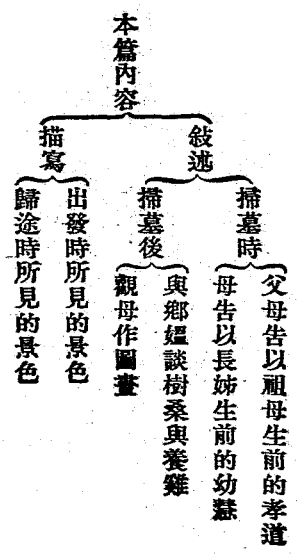 本篇內容
敍述
掃墓時
父母告以祖母生前的孝道
母告以長姊生前的幼慧
掃墓後
與鄉媼談樹桑與養雞
觀母作圖畫
描寫
出發時所見的景色
歸途時所見的景色